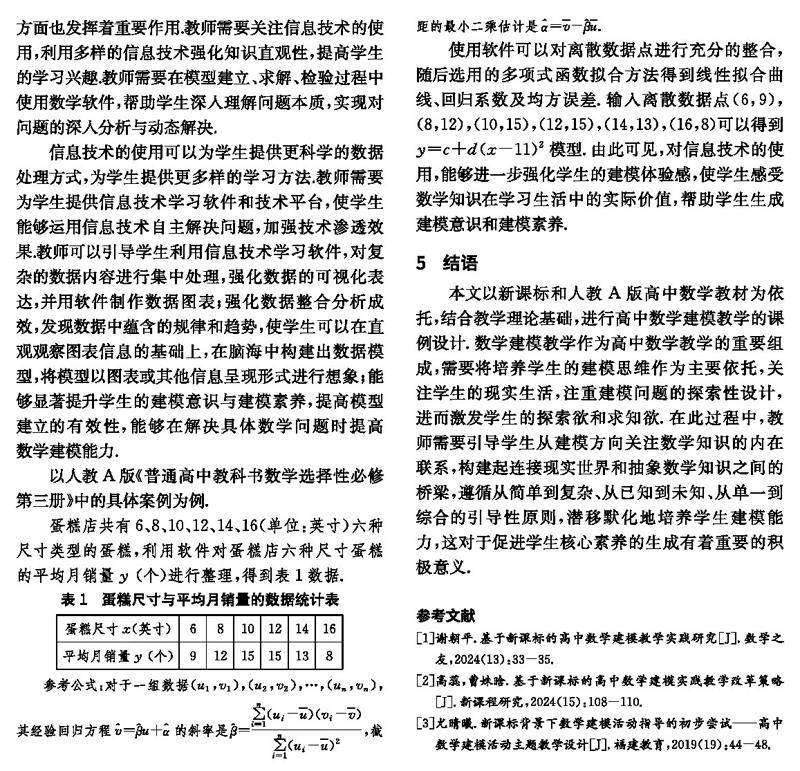 方面也发挥着重要作用.教师需要关注信息技术的使
用,利用多样的信息技术强化知识直观性,提高学生
的学习兴趣.教师需要在模型建立、求解、检验过程中
使用数学软件,帮助学生深入理解问题本质,实现对
问题的深入分析与动态解决.
信息技术的使用可以为学生提供更科学的数据
处理方式,为学生提供更多样的学习方法.教师需要
为学生提供信息技术学习软件和技术平台,使学生
能够运用信息技术自主解决问题,加强技术渗透效
果.教师可以引导学生利用信息技术学习软件,对复
杂的数据内容进行集中处理,强化数据的可视化表
达,并用软件制作数据图表;强化数据整合分析成
效,发现数据中蕴含的规律和趋势,使学生可以在直
观观察图表信息的基础上,在脑海中构建出数据模
型,将模型以图表或其他信息呈现形式进行想象;能
够显著提升学生的建模意识与建模素养,提高模型
建立的有效性,能够在解决具体数学问题时提高
数学建模能力.
以人教A版《普通高中教科书数学选择性必修
第三册》中的具体案例为例.
蛋糕店共有6、8、10、12、14、16(单位:英寸)六种
尺寸类型的蛋糕,利用软件对蛋糕店六种尺寸蛋糕
的平均月销量y(个)进行整理,得到表1数据.
表1 蛋糕尺寸与平均月销量的数据统计表
蛋糕尺寸x(英寸) 6 8 10 12 14 16
平均月销量y(个) 9 12 15 15 13 8
参考公式:对于一组数据(u₁,v₁),(u₂,v₂),…,(uₙ,vₙ),
其经验回归方程v̂=β̂u+α̂的斜率是β̂=∑ᵢ₌₁ⁿ(uᵢ-ū)(vᵢ-v̄)/∑ᵢ₌₁ⁿ(uᵢ-ū)²,截
距的最小二乘估计是α̂=v̄-β̂ū.
使用软件可以对离散数据点进行充分的整合,
随后选用的多项式函数拟合方法得到线性拟合曲
线、回归系数及均方误差.输入离散数据点(6,9),
(8,12),(10,15),(12,15),(14,13),(16,8)可以得到
y=c+d(x-11)²模型.由此可见,对信息技术的使
用,能够进一步强化学生的建模体验感,使学生感受
数学知识在学习生活中的实际价值,帮助学生生成
建模意识和建模素养.
5 结语
本文以新课标和人教A版高中数学教材为依
托,结合教学理论基础,进行高中数学建模教学的课
例设计.数学建模教学作为高中数学教学的重要组
成,需要将培养学生的建模思维作为主要依托,关
注学生的现实生活,注重建模问题的探索性设计,
进而激发学生的探索欲和求知欲.在此过程中,教
师需要引导学生从建模方向关注数学知识的内在
联系,构建起连接现实世界和抽象数学知识之间的
桥梁,遵循从简单到复杂、从已知到未知、从单一到
综合的引导性原则,潜移默化地培养学生建模能
力,这对于促进学生核心素养的生成有着重要的积
极意义.
参考文献
[1]谢朝平.基于新课标的高中数学建模教学实践研究[J].数学之
友,2024(13):33-35.
[2]高蕊,曹姝晗.基于新课标的高中数学建模实践教学改革策略
[J].新课程研究,2024(15):108-110.
[3]尤晴曦.新课标背景下数学建模活动指导的初步尝试——高中
数学建模活动主题教学设计[J].福建教育,2019(19):44-48.